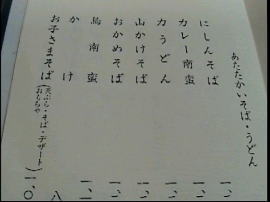 あたたかいそば・うどん
にしんそば
カレー南蛮
力うどん
山かけそば
おかめそば
鳥南蛮
かけ
お子さまそば(天ぷら・そば・デザート
おもちゃ)
一、
一、
一、
一、
一、
一、一
八
一、〇